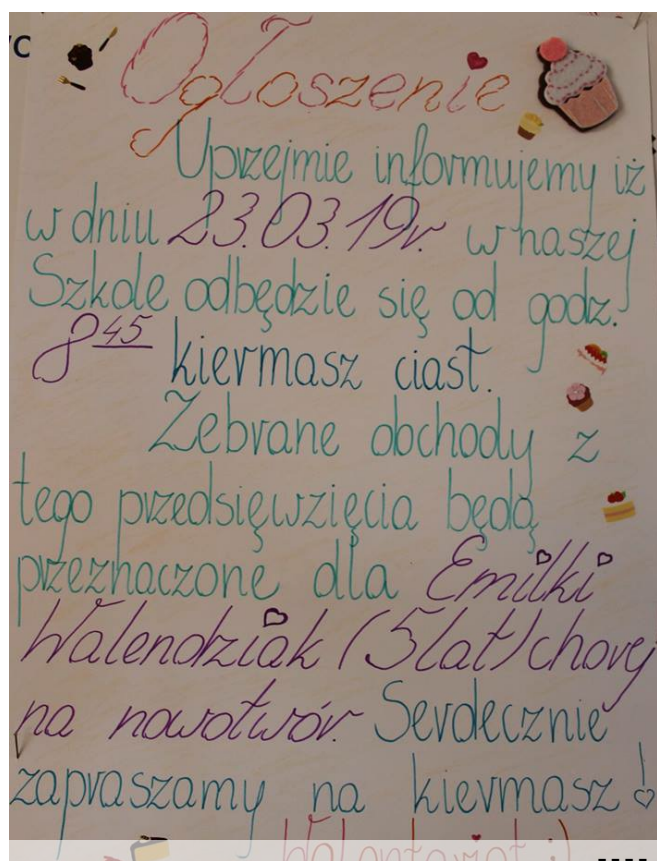 Ogłoszenie
Uprzejmie informujemy iż
w dniu 23.03.19r. w naszej
Szkole odbędzie się od godz.
8 45 kiermasz ciast.
Zebrane obchody z
tego przedsięwzięcia będą
przeznaczone dla Emilki
Walendziak (5 lat) chorej
na nowotwór. Serdecznie
zapraszamy na kiermasz!